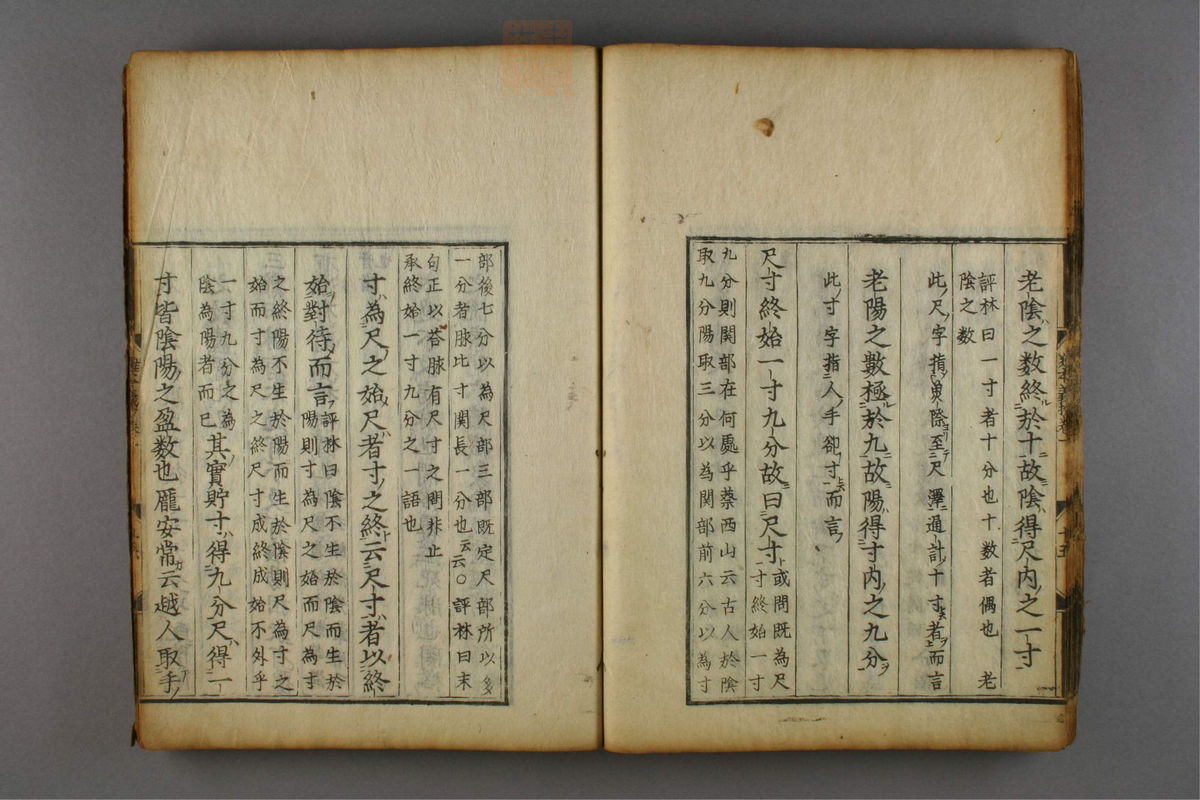 老陰之数終於十故陰得尺内之一寸
評林曰一寸者十分也十数者偶也　老
陰之数
此尺字指魚際至尺澤通計十寸者而言
老陽之數極於九故陽得寸内之九分
此寸字指人手卻寸而言
尺寸終始一寸九分故曰尺寸
或問既為尺
寸終始一寸
九分則関部在何處乎蔡西山云古人於陰
取九分陽取三分以為関部前六分以為寸
部後七分以為尺部三部既定尺部所以多
一分者脉比寸関長一分也云云○評林曰末
句正以荅脉有尺寸之問非止
承終始一寸九分之一語也
寸為尺之始尺者寸之終云尺寸者以終
始對待而言
評林曰陰不生於陰而生於
陽則寸為尺之始而尺為寸
之終陽不生於陽而生於陰則尺為寸之
始而寸為尺之終尺寸成終成始不外乎
一寸九分之為
陰為陽者而已
其實貯寸得九分尺得一
寸皆陰陽之盈数也龐安常云越人取手